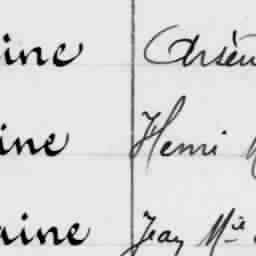 ine Arsèn
ine Henri
aine Jean Mie